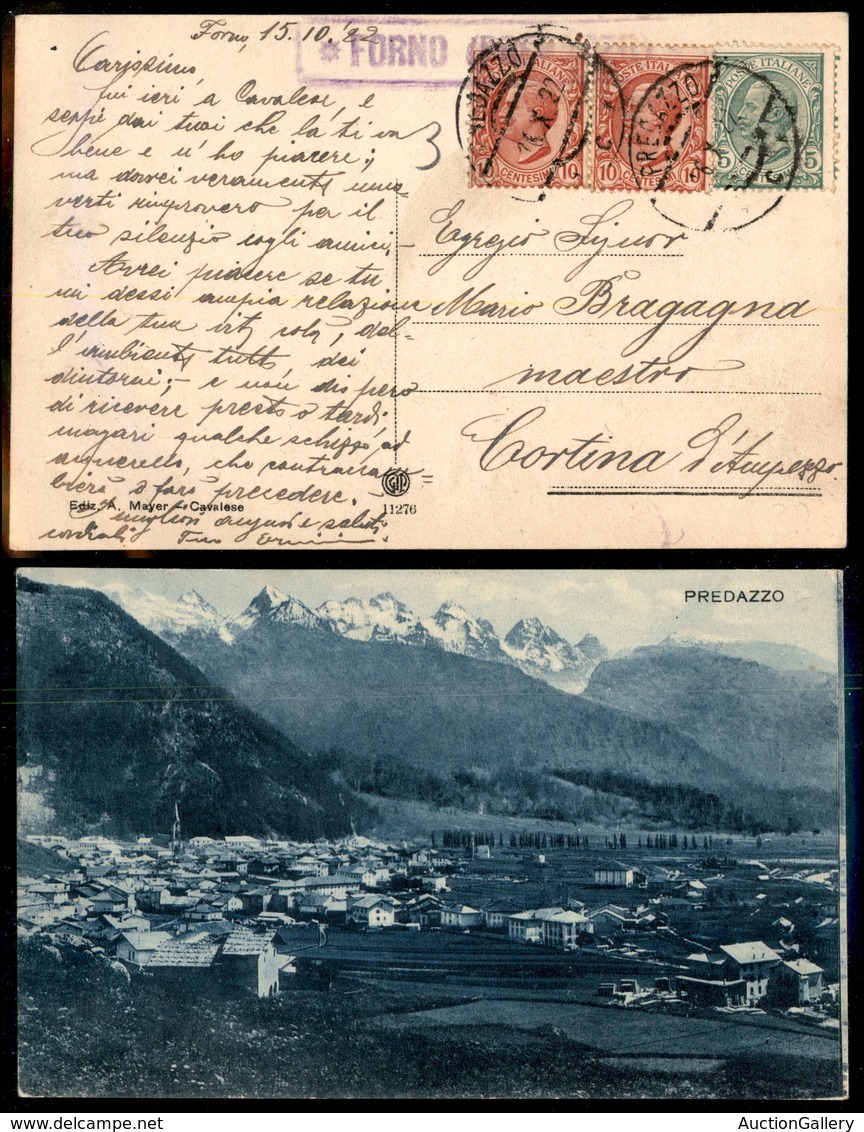 Forno, 15.10.22
* FORNO
Carissimo
fui ieri a Cavalese, e
seppi dai tuoi che la ti va
bene e n'ho piacere;
ma dovrei veramente
verti rimprovero per il
tuo silenzio cogli amici. -
Avrei piacere se tu
mi dessi ampia relazione
della tua vita costà, del-
l'ambiente tutto dei
dintorni; - e non dispero
di ricevere presto o tardi
magari qualche schizzo ad
acquerello, che
precedere.
e saluti
cordiali Tuo
3
PREDAZZO
POSTE ITALIANE
10 CENTESIMI 10
PREDAZZO
POSTE ITALIANE
10 CENTESIMI 10
POSTE ITALIANE
5 CENTESIMI 5
Egregio Signor
Mario Bragagna
maestro
Cortina d'Ampezzo
Ediz. A. Mayer - Cavalese
11276
PREDAZZO
AuctionGallery